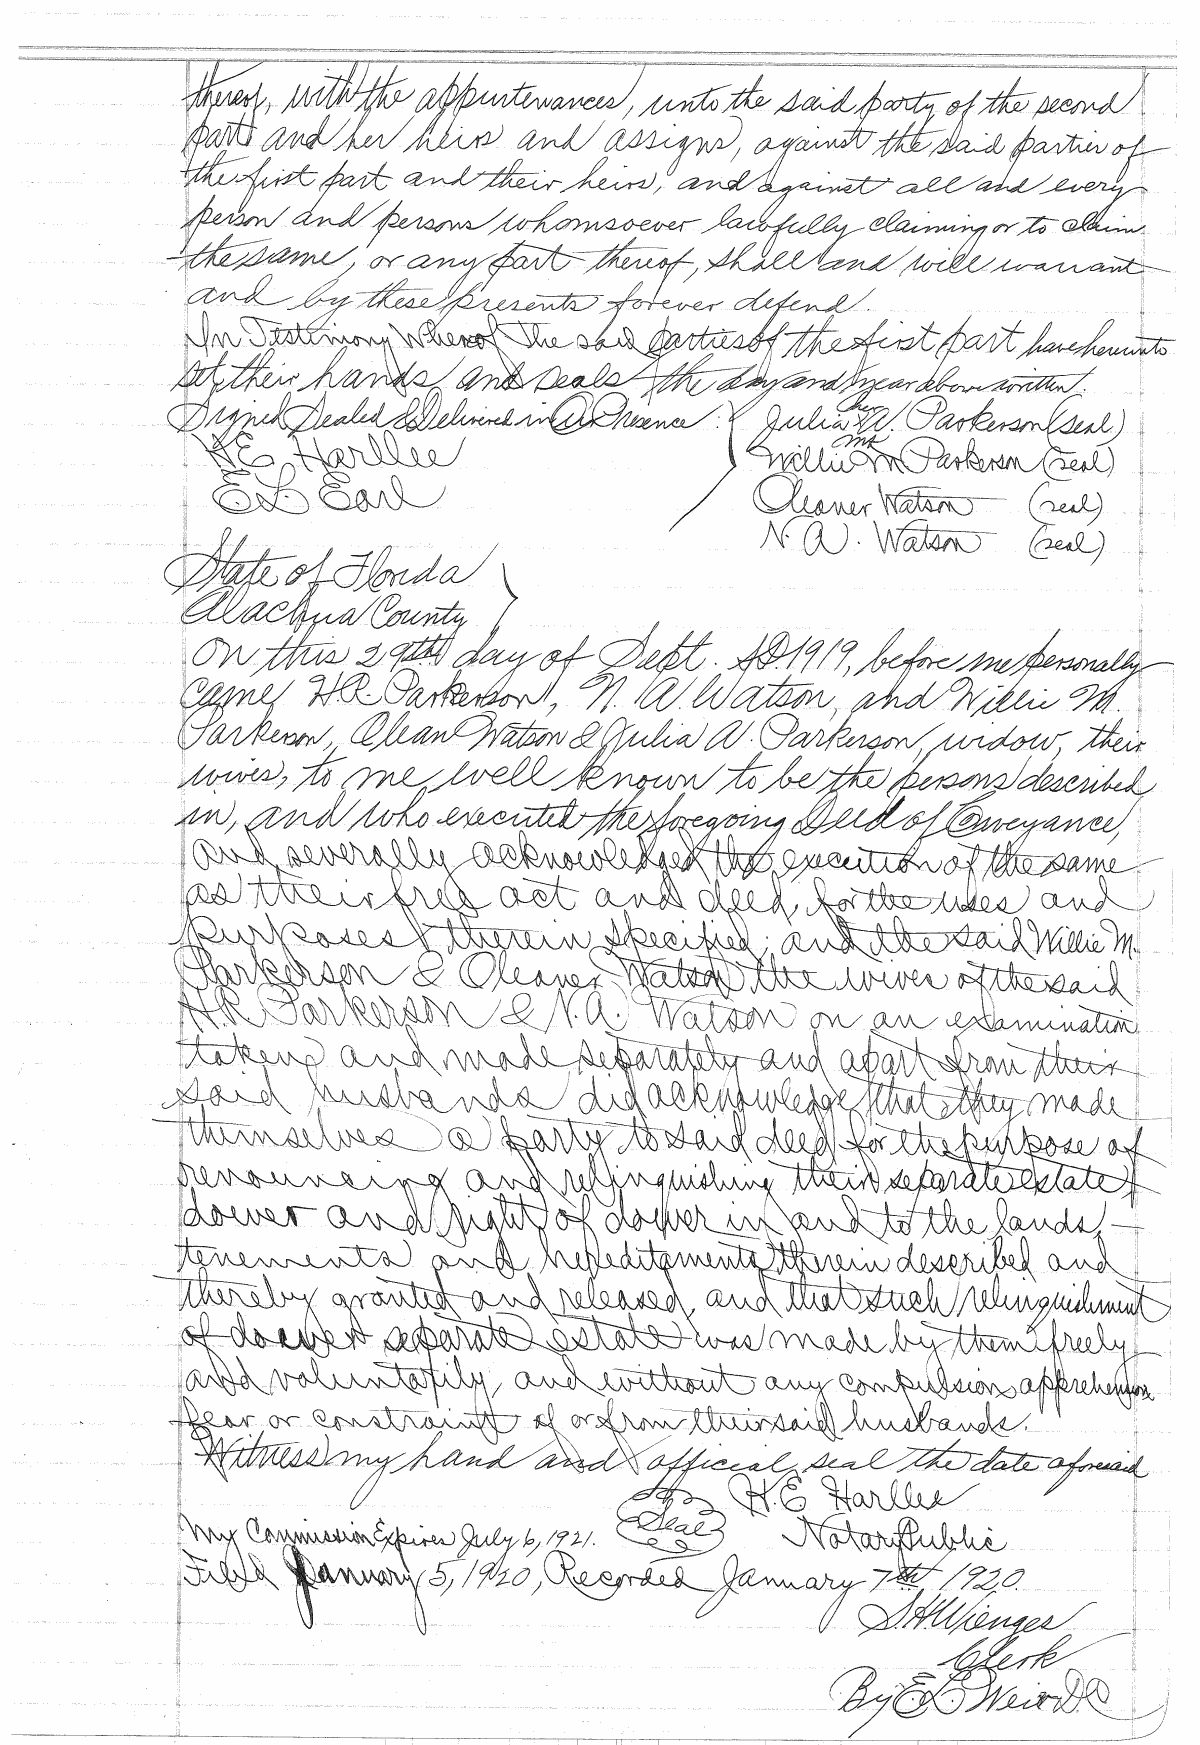 thereof, with the appurtenances, unto the said party of the second
part and her heirs and assigns, against the said parties of
the first part and their heirs, and against all and every
person and persons whomsoever lawfully claiming or to claim
the same, or any part thereof, shall and will warrant
and by these presents forever defend.
In Testimony Whereof the said parties of the first part have hereunto
set their hands and seals the day and year above written.
Signed Sealed & Delivered in Our Presence: Julia A. Parkerson (seal)
H.E. Harllee
Willie M Parkerson (seal)
E.L. Earl
Oleaner Watson (seal)
N. A. Watson (seal)
State of Florida
Alachua County
On this 29th day of Sept. A.D. 1919, before me personally
came H.R. Parkerson, N. A. Watson, and Willie M.
Parkerson, Olean Watson & Julia A. Parkerson, widow, their
wives, to me well known to be the persons described
in, and who executed the foregoing Deed of Conveyance,
and severally acknowledged the execution of the same
as their free act and deed, for the uses and
purposes therein specified; and the said Willie M.
Parkerson & Oleaner Watson the wives of the said
H.R. Parkerson & N.A. Watson on an examination
taken and made separately and apart from their
said husbands did acknowledge that they made
themselves a party to said deed for the purpose of
renouncing and relinquishing their separate estate,
dower and right of dower in and to the lands,
tenements and hereditaments therein described and
thereby granted and released, and that such relinquishment
of dower separate estate was made by them freely
and voluntarily, and without any compulsion apprehension
fear or constraint of or from their said husbands.
Witness my hand and official seal the date aforesaid
H.E Harllee
Seal
My Commission Expires July 6, 1921. Notary Public
Filed January 5, 1920, Recorded January 7th 1920.
S.H. Wienges
Clerk
By E L Weir D.C